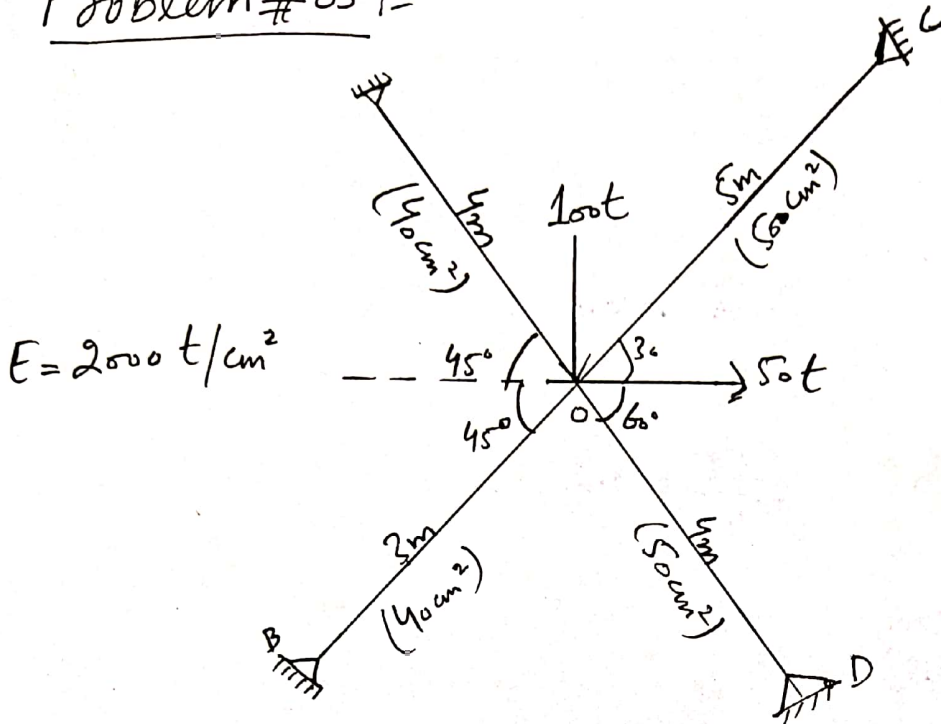 Problem # 03 :-
C
4m
(40cm²)
100t
5m
(50cm²)
E = 2000 t/cm²
45°
30
50t
45°
O
60°
3m
(40cm²)
4m
(50cm²)
B
D